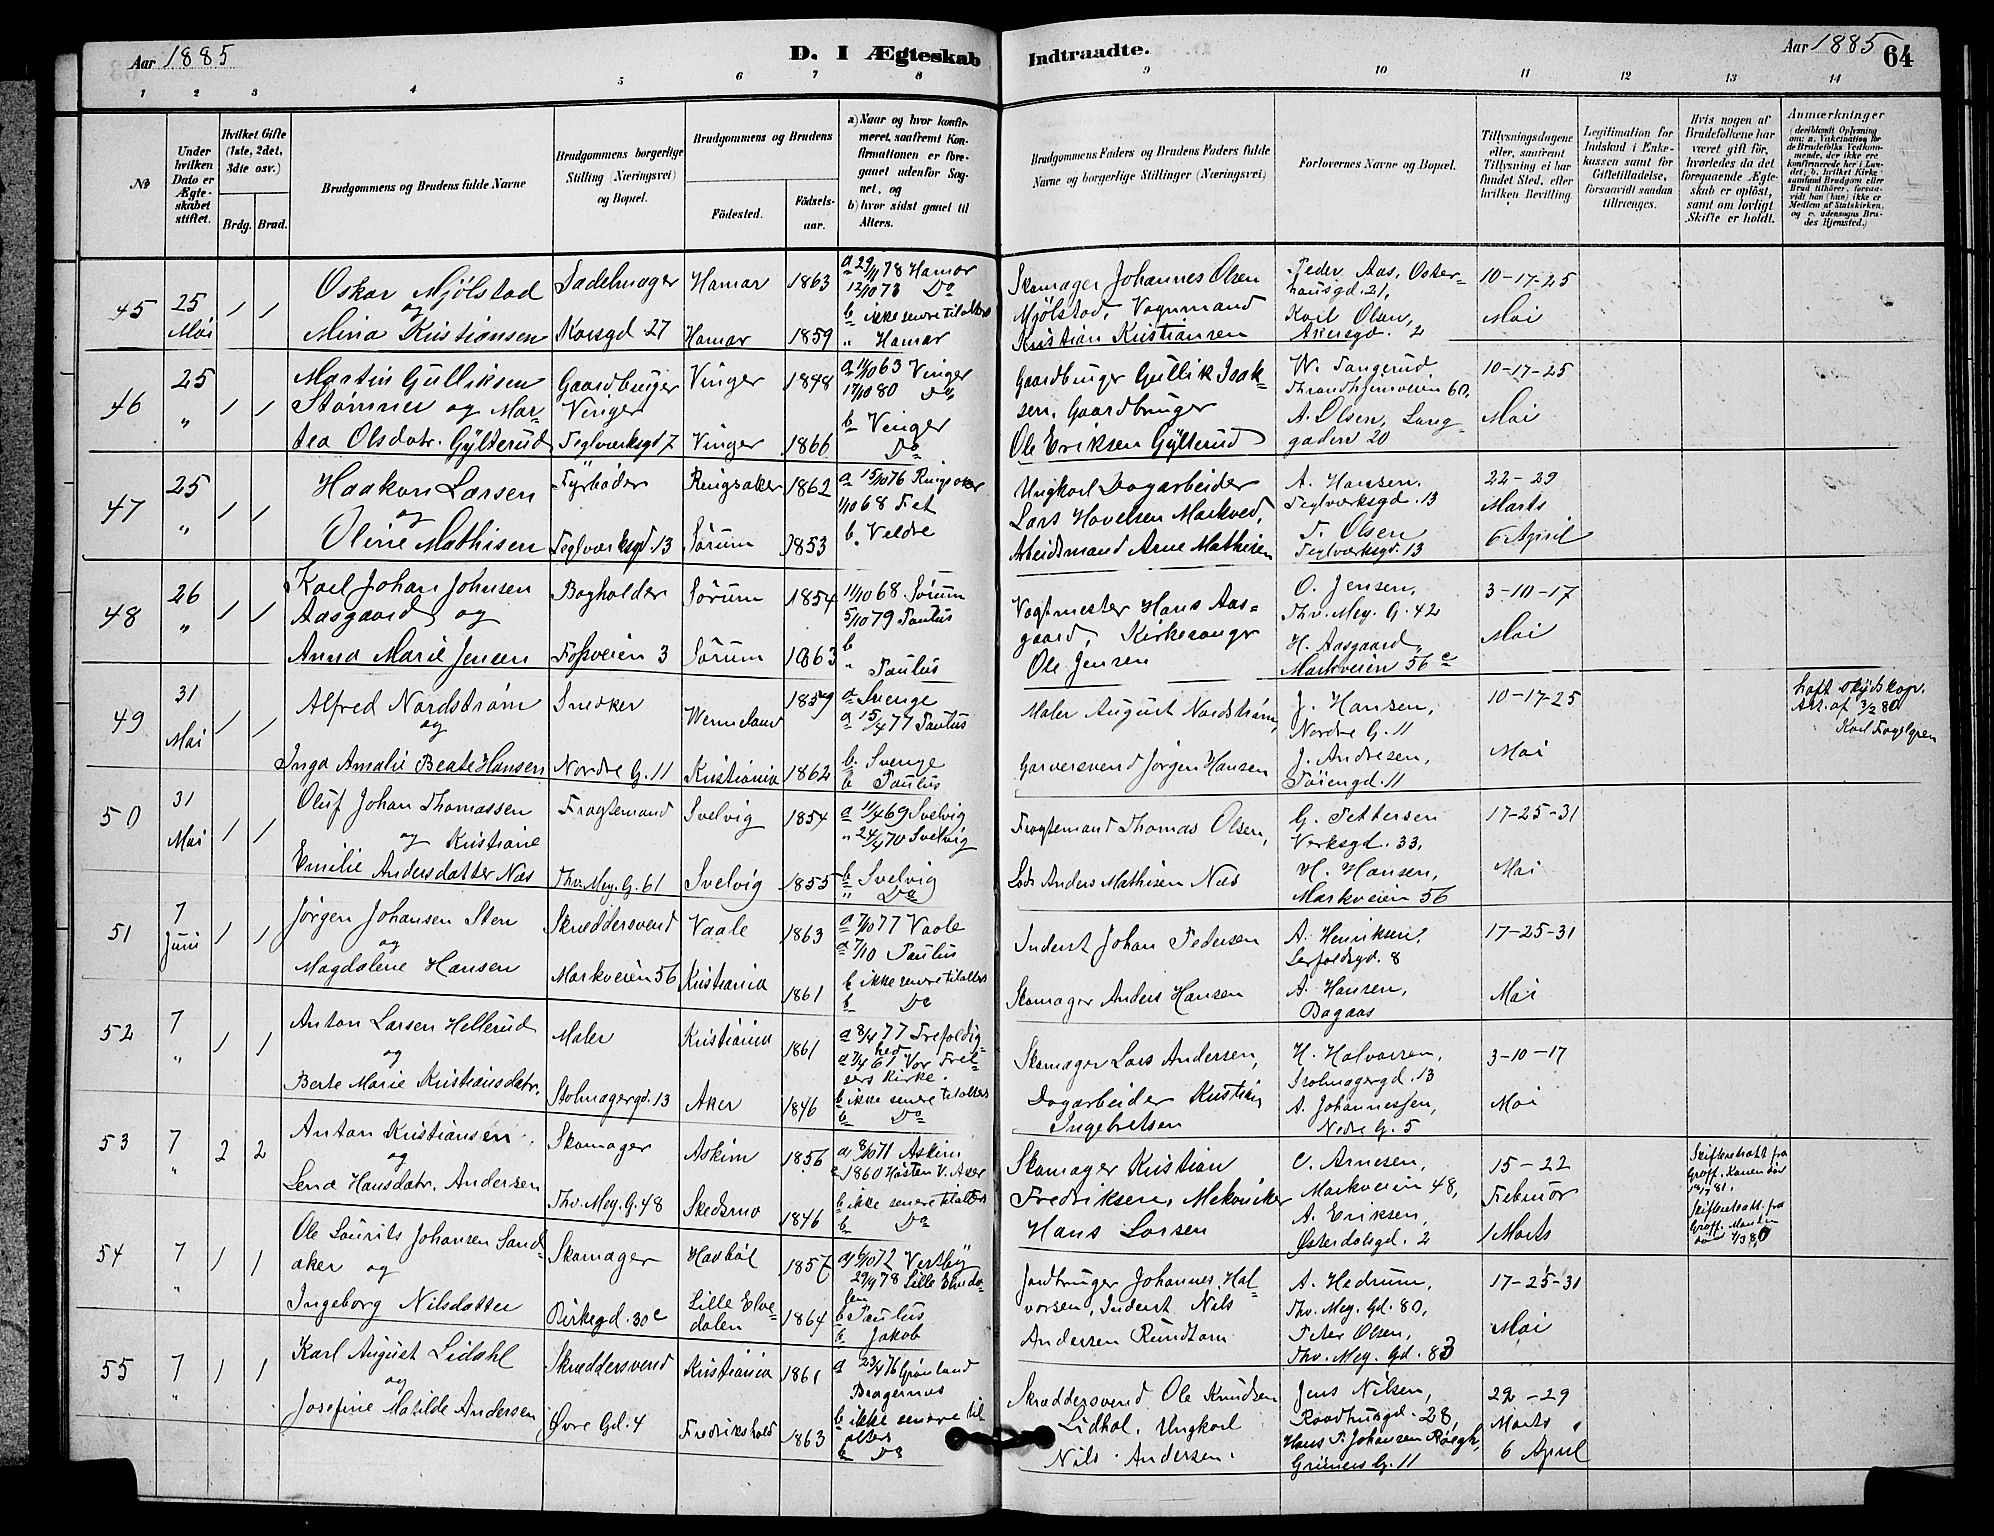 Aar 1885
D. I Ægteskab
Indtraadte.
Aar 1885
64
1 2 3 4 5 6 7 8 9 10 11 12 13 14
No
Under hvilken Dato er Ægteskabet stiftet.
Hvilket Gifte (1ste, 2det, 3dte osv.)
Brdg. Brud.
Brudgommens og Brudens fulde Navne
Brudgommens borgerlige Stilling (Næringsvei) og Bopæl.
Brudgommens og Brudens
Fødested.
Fødselsaar.
a) Naar og hvor konfirmeret, saafremt Konfirmationen er foregaaet udenfor Sognet, og
b) hvor sidst gaaet til Alters.
Brudgommens Faders og Brudens Faders fulde Navne og borgerlige Stillinger (Næringsvei)
Forlovernes Navne og Bopæl.
Tillysningsdagene eller, saafremt Tillysning ei har fundet Sted, efter hvilken Bevilling.
Legitimation for Indskud i Enkekassen samt for Giftetilladelse, forsaavidt saadan tiltrænges.
Hvis nogen af Brudefolkene har været gift før, hvorledes da det foregaaende Ægteskab er opløst, samt om lovligt Skifte er holdt.
Anmærkninger
(deriblandt Oplysning om: a. Vakcination for de Brudefolks Vedkommende, der ikke ere konfirmerede her i Landet; b. hvilket Kirkesamfund Brudgom eller Brud tilhører, forsaavidt han (hun) ikke er Medlem af Statskirken, og c. udensogns Brudes Hjemsted.)
45
25 Mai
1 1
Oskar Mjølstad
og
Mina Kristiansen
Sadelmager
Korsgd 27
Hamar 1863
Hamar 1859
a 29/11 78 Hamar
12/10 73 Do
b ikke senere til alters
" Hamar
Skomager Johannes Olsen
Mjølstad, Vognmand
Kristian Kristiansen
Peder Aas, Oster-
hausgd. 21,
Karl Olsen,
Akersgd. 2
10-17-25
Mai
46
25
"
1 1
Martin Gulliksen
Stømner og Mar-
tea Olsdatr. Gylterud
Gaardbruger
Vinger
Teglværksgd 7
Vinger 1848
Vinger 1866
a 11/10 63 Vinger
17/10 80 Do
b Vinger
Do
Gaardbruger Gullik Isak-
sen. Gaardbruger
Ole Eriksen Gylterud
W. Tangerud
Throndhjemsveien 60,
A. Olsen, Lang-
gaden 20
10-17-25
Mai
47
25
"
1 1
Haakon Larsen
og
Oline Mathisen
Fyrbøder
Teglværksgd. 13
Ringsaker 1862
Sørum 1853
a 15/10 76 Ringsaker
1/10 68 Fet
b. Veldre
Ungkarl Dagarbeider
Lars Hovelsen Markved,
Arbeidsmand Arne Mathisen
A. Hansen,
Teglværksgd. 13
T. Olsen
Teglværksgd. 13
22-29
Marts
6 April
48
26
"
1 1
Karl Johan Johnsen
Aasgaard og
Anna Marie Jensen
Bogholder
Fossveien 3
Sørum 1854
Sørum 1863
11/10 68 Sørum
5/10 79 Paulus
b
" Paulus
Vagtmester Hans Aas-
gaard, Kirkesanger
Ole Jensen
O. Jensen,
Thv. Mey. G. 42
H. Aasgaard,
Markveien 56 c
3-10-17
Mai
49
31
Mai
1 1
Alfred Nordstrøm
og
Inga Amalie Beate Hansen
Snedker
Nordre G. 11
Wermeland 1859
Kristiania 1862
a Sverige
a 15/4 77 Paulus
b. Sverige
b Paulus
Maler August Nordstrøm,
Garversvend Jørgen Hansen
J. Hansen,
Nordre G. 11
J. Andresen,
Tøiengd. 11
10-17-25
Mai
Att. af 3/2 80
50
31
Mai
1 1
Oluf Johan Thomassen
og Kristiane
Emilie Andersdatter Næs
Fragtemand
Thv. Mey. G. 61
Svelvig 1854
Svelvig 1855
a 11/4 69 Svelvig
" 24/4 70 Svelvig
b Svelvig
" Do
Fragtemand Thomas Olsen,
Lods Anders Mathisen Næs
G. Pettersen
Verksgd. 33,
H. Hansen,
Markveien 56
17-25-31
Mai
51
7
Juni
1 1
Jørgen Johansen Sten
og
Magdalene Hansen
Skræddersvend
Markveien 56
Vaale 1863
Kristiania 1861
a 7/10 77 Vaale
a 7/10 Paulus
b ikke senere til alters
b Do
Inderst Johan Pedersen
Skomager Anders Hansen
A. Henriksen,
Lerfoldsgd. 8
A. Hansen,
Bagaas
17-25-31
Mai
52
7
"
1 1
Anton Larsen Hellerud
og
Berte Marie Kristiansdatr.
Maler
Stolmagergd. 13
Kristiania 1861
Aker 1846
a 8/4 77 Trefoldig-
hed
a 7/4 61 Vor Frel-
sers Kirke.
b ikke senere til alters
b Do
Skomager Lars Andersen,
Dagarbeider Kristian
Ingebretsen
H. Halvorsen,
Stolmagergd. 13
A. Johannessen,
Nedre G. 5
3-10-17
Mai
53
7
"
2 2
Anton Kristiansen,
og
Lena Hansdatr. Andersen
Skomager
Thv. Mey. G. 48
Askim 1856
Skedsmo 1846
a 8/10 71 Askim
a 1860 Høsten V. Aker
b ikke senere til alters
b Do
Skomager Kristian
Fredriksen, Mekaniker
Hans Larsen
C. Arnesen,
Markveien 48,
A. Eriksen,
Østerdalsgd. 2
15-22
Februar
1 Marts
Skifteextrakt fra
Skifteextrakt. fra
54
7
"
1 1
Ole Laurits Johansen Sand-
aker og
Ingeborg Nilsdatter
Skomager
Birkegd. 30 c
Haabøl 1857
Lille Elve-
dalen 1864
a 6/10 72 Vestby
29/9 78 Lille Elveda-
len
b Paulus
b Jakob
Jordbruger Johannes Hal-
vorsen, Inderst Nils
Andersen Rundtom
A. Hedrum,
Thv. Mey. Gd. 80,
Peter Olsen,
Thv. Mey. Gd. 83
17-25-31
Mai
55
7
"
1 1
Karl August Lidahl
og
Josefine Matilde Andersen
Skræddersvend
Øvre Gd. 4
Kristiania 1861
Fredrikshald 1863
a 23/4 76 Grønland
Bragernæs
b ikke senere til
alters
b Do
Skræddersvend Ole Knudsen
Lidhal, Ungkarl
Nils Andersen.
Jens Nilsen,
Raadhusgd. 28,
Hans P. Johansen
Grüners G. 11
22-29
Marts
6 April